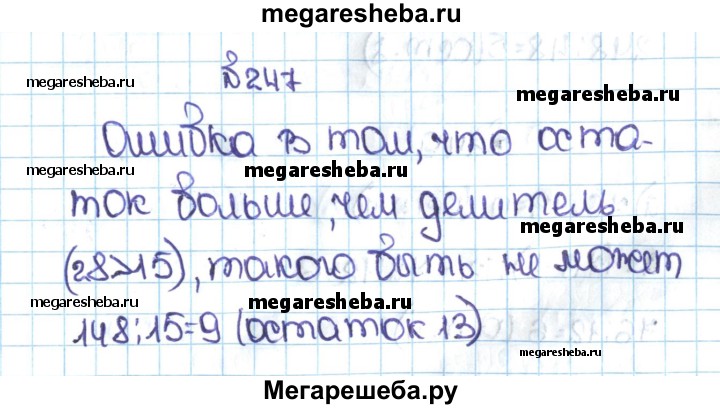 megaresheba.ru
№247
megaresheba.ru
megaresheba.ru
Ошибка в том, что оста-
megaresheba.ru
megaresheba.ru
ток больше, чем делитель
megaresheba.ru
(28>15), такого быть не может
megaresheba.ru
megaresheba.ru
148:15=9 (остаток 13)
megaresheba.ru
Мегарешеба.ру